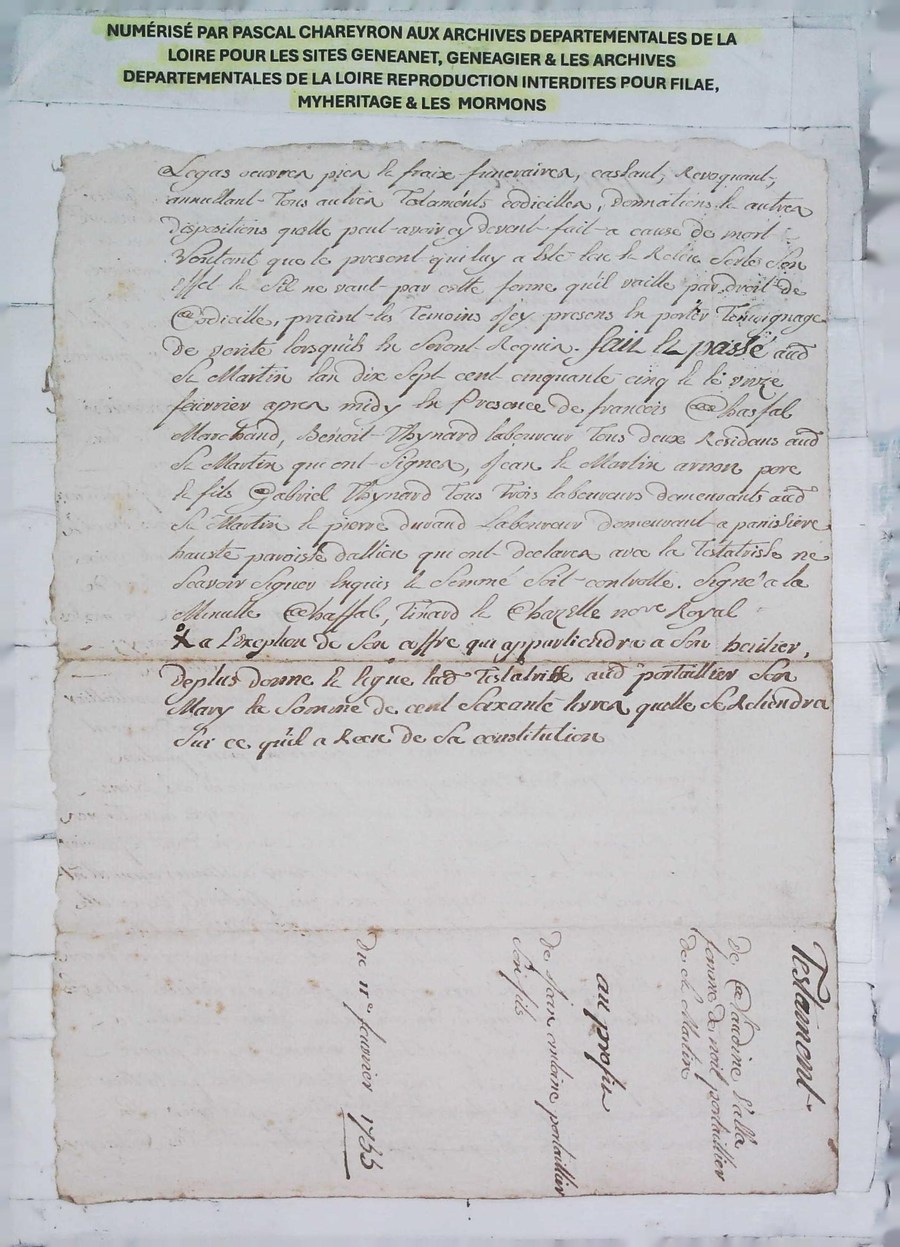 NUMÉRISÉ PAR PASCAL CHAREYRON AUX ARCHIVES DEPARTEMENTALES DE LA
LOIRE POUR LES SITES GENEANET, GENEAGIER & LES ARCHIVES
DEPARTEMENTALES DE LA LOIRE REPRODUCTION INTERDITES POUR FILAE,
MYHERITAGE & LES MORMONS
Legas oeuvres pies & fraix funeraires, caslant, Revoquant,
annullant Tous autres Testaments codicilles, donnations & autres
dispositions quelle peut avoir cy devent fait a cause de mort
Voulant que le present qui luy a Esté leu & Releu sorte son
Effet & s'il ne vaut par cette forme qu'il vaille par droit de
Codicille, priant les Temoins icy presens En porter Temoignage
de verité lorsquils En seront Requis. fait & passé aud
St Martin lan dix sept cent cinquante cinq & le unze
feuvrier apres midy En Presence de francois Chassal
Marchand, Benoit Thynard laboureur Tous deux Residans aud
St Martin qui ont signes, Jean & Martin arnon pere
& fils Gabriel Thynard Tous Trois laboureurs demeurants aud
St Martin & pierre durand Laboureur demeurant a panissiere
hauste paroisse dallieu qui ont declares avec la Testatrisse ne
scavoir signer Enquis & semmé soit controllé. Signé a la
Minutte Chassal, Tinard & Chazelle nore Royal
X a L'exeption de son coffre qui appartiendra a son heritier,
deplus donne & legue lade Testatrisse aud portaillier son
Mary la somme de cent soixante livres quelle se Retiendra
sur ce qu'il a Receu de sa constitution
Testament
de Claudine
femme benoit portaillier
de st Martin
au profit
de Jean antoine portaillier
son fils
du 11e feuvrier 1755